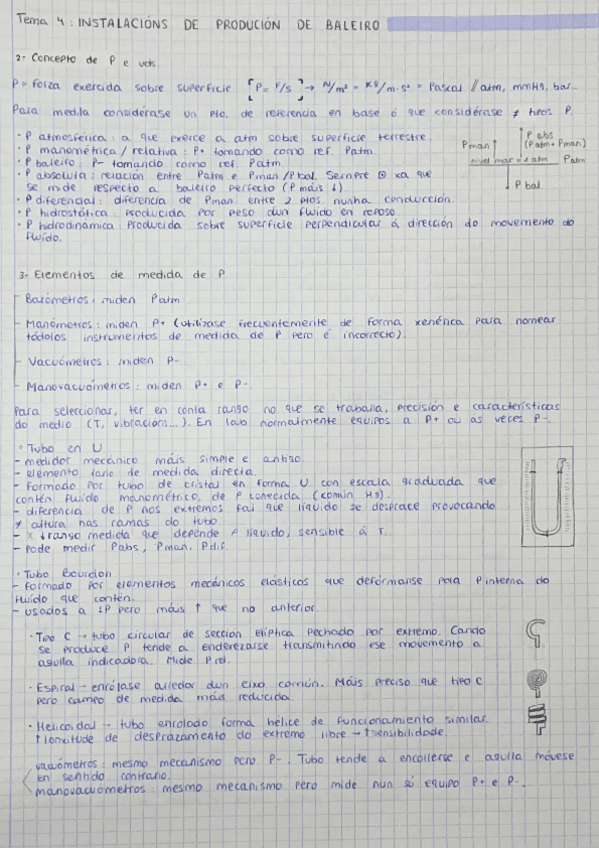 Tema 4: INSTALACIÓNS DE PRODUCIÓN DE BALEIRO
2- Concepto de P e uds.
P = forza exercida sobre superficie [P = F/S] → N/m² = Kg/m·s² = Pascal // atm, mmHg, bar...
Para medila considérase un pto. de referencia en base ó que considérase ≠ tipos P.
· P atmosférica: a que exerce a atm sobre superficie terrestre.
· P manométrica / relativa: P+ tomando como ref. Patm.
· P baleiro: P- tomando como ref. Patm.
· P absoluta: relación entre Patm e Pman/Pbal. Sempre ⊕ xa que
se mide respecto a baleiro perfecto (P máis ↓).
· P diferencial: diferencia de Pman entre 2 ptos nunha condución.
· P hidrostática: producida por peso dun fluído en reposo.
· P hidrodinámica: producida sobre superficie perpendicular á dirección do movemento do
fluído.
Pman
P abs
(Patm + Pman)
nivel mar = 1 atm Patm
P bal
3- Elementos de medida de P
- Barómetros: miden Patm
- Manómetros: miden P+ (utilízase frecuentemente de forma xenérica para nomear
tódolos instrumentos de medida de P pero é incorrecto).
- Vacuómetros: miden P-
- Manovacuómetros: miden P+ e P-
Para seleccionar, ter en conta rango no que se traballa, precisión e características
do medio (T, vibracións...). En lavo normalmente equipos a P+ ou as veces P-.
· Tubo en U
- medidor mecánico máis simple e antigo.
- elemento de medida directa.
- Formado por tubo de cristal en forma U con escala graduada que
contén fluído manométrico, de ρ coñecida (común Hg).
- diferencia de P nos extremos fai que líquido se desprace provocando
≠ altura nas ramas do tubo.
- X ↓rango medida que depende ρ líquido, sensible á T.
- Pode medir Pabs, Pman, Pdif.
· Tubo Bourdon
- Formado por elementos mecánicos elásticos que defórmanse pola P interna do
fluído que contén.
- usados a ↓P pero máis ↑ que no anterior.
· Tipo C → tubo circular de sección elíptica pechado por extremo. Cando
se produce P tende a enderezarse transmitindo ese movemento a
agulla indicadora. Mide Prel.
· Espiral → enrólase arredor dun eixo común. Máis preciso que tipo C
pero campo de medida máis reducida
· Helicoidal → tubo enrolado forma helice de funcionamiento similar.
↑ lonxitude de desprazamento do extremo libre → ↑sensibilidade.
vacuómetros: mesmo mecanismo pero P-. Tubo tende a encollerse e agulla móvese
en sentido contrario.
manovacuómetros: mesmo mecanismo pero mide nun só equipo P+ e P-.